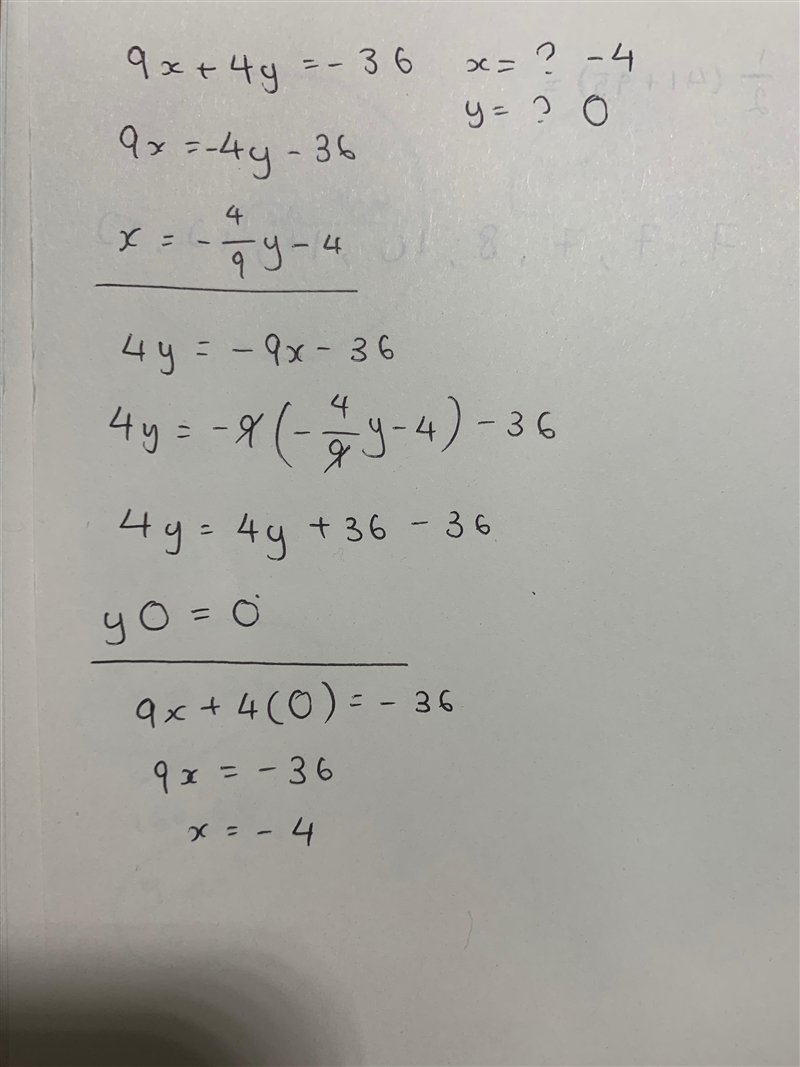 9x + 4y = - 36 x = ? -4
y = ? 0
9x = -4y - 36
x = - 4/9 y - 4
4y = - 9x - 36
4y = - 9 ( - 4/9 y - 4 ) - 36
4y = 4y + 36 - 36
y0 = 0
9x + 4(0) = - 36
9x = - 36
x = - 4